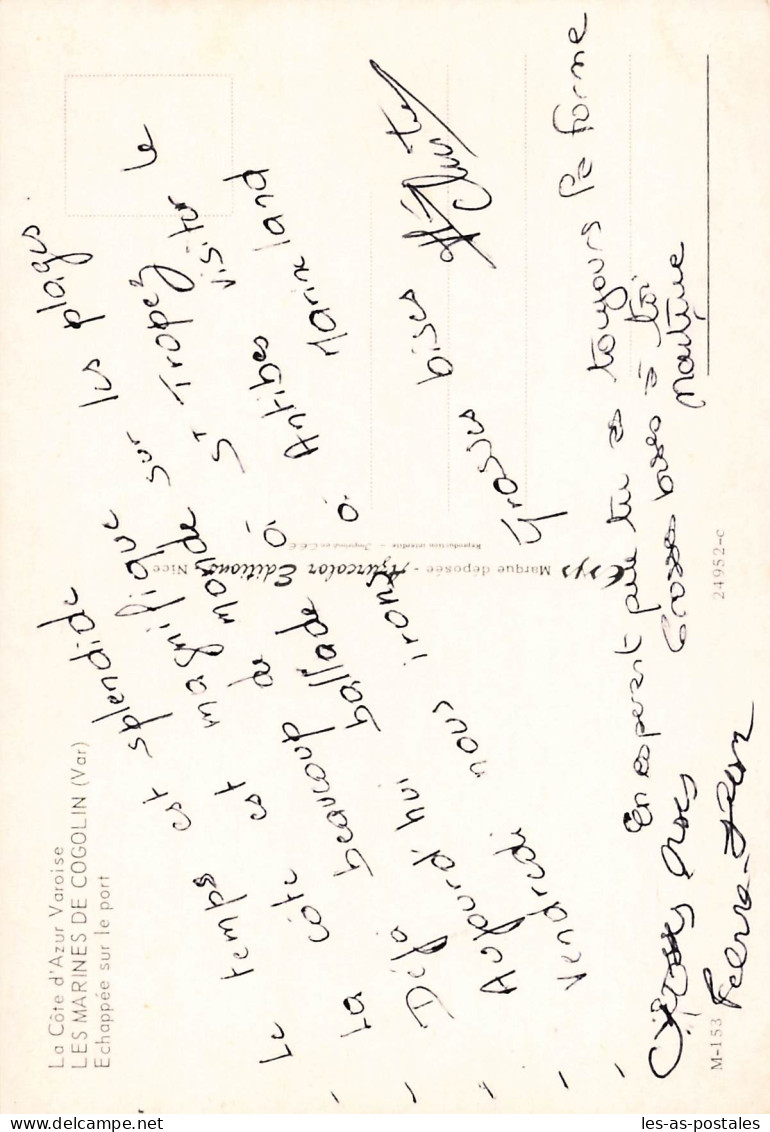 La Côte d'Azur Varoise
LES MARINES DE COGOLIN (Var)
Echappée sur le port
Le temps est splendide
La côte est magnifique
Déjà beaucoup de monde sur les plages
Aujourd'hui ballade à St Tropez
Vendredi nous irons à Antibes visiter le
Marineland
Grosses bises
En esperant que tu es toujours Pe forme
Grosses bises à toi
Martine
Grosses Bises
Marque déposée - Azurcolor Editions Nice
Reproduction interdite - Imprimé en C.E.E.
M-153
24952-c
les-as-postales